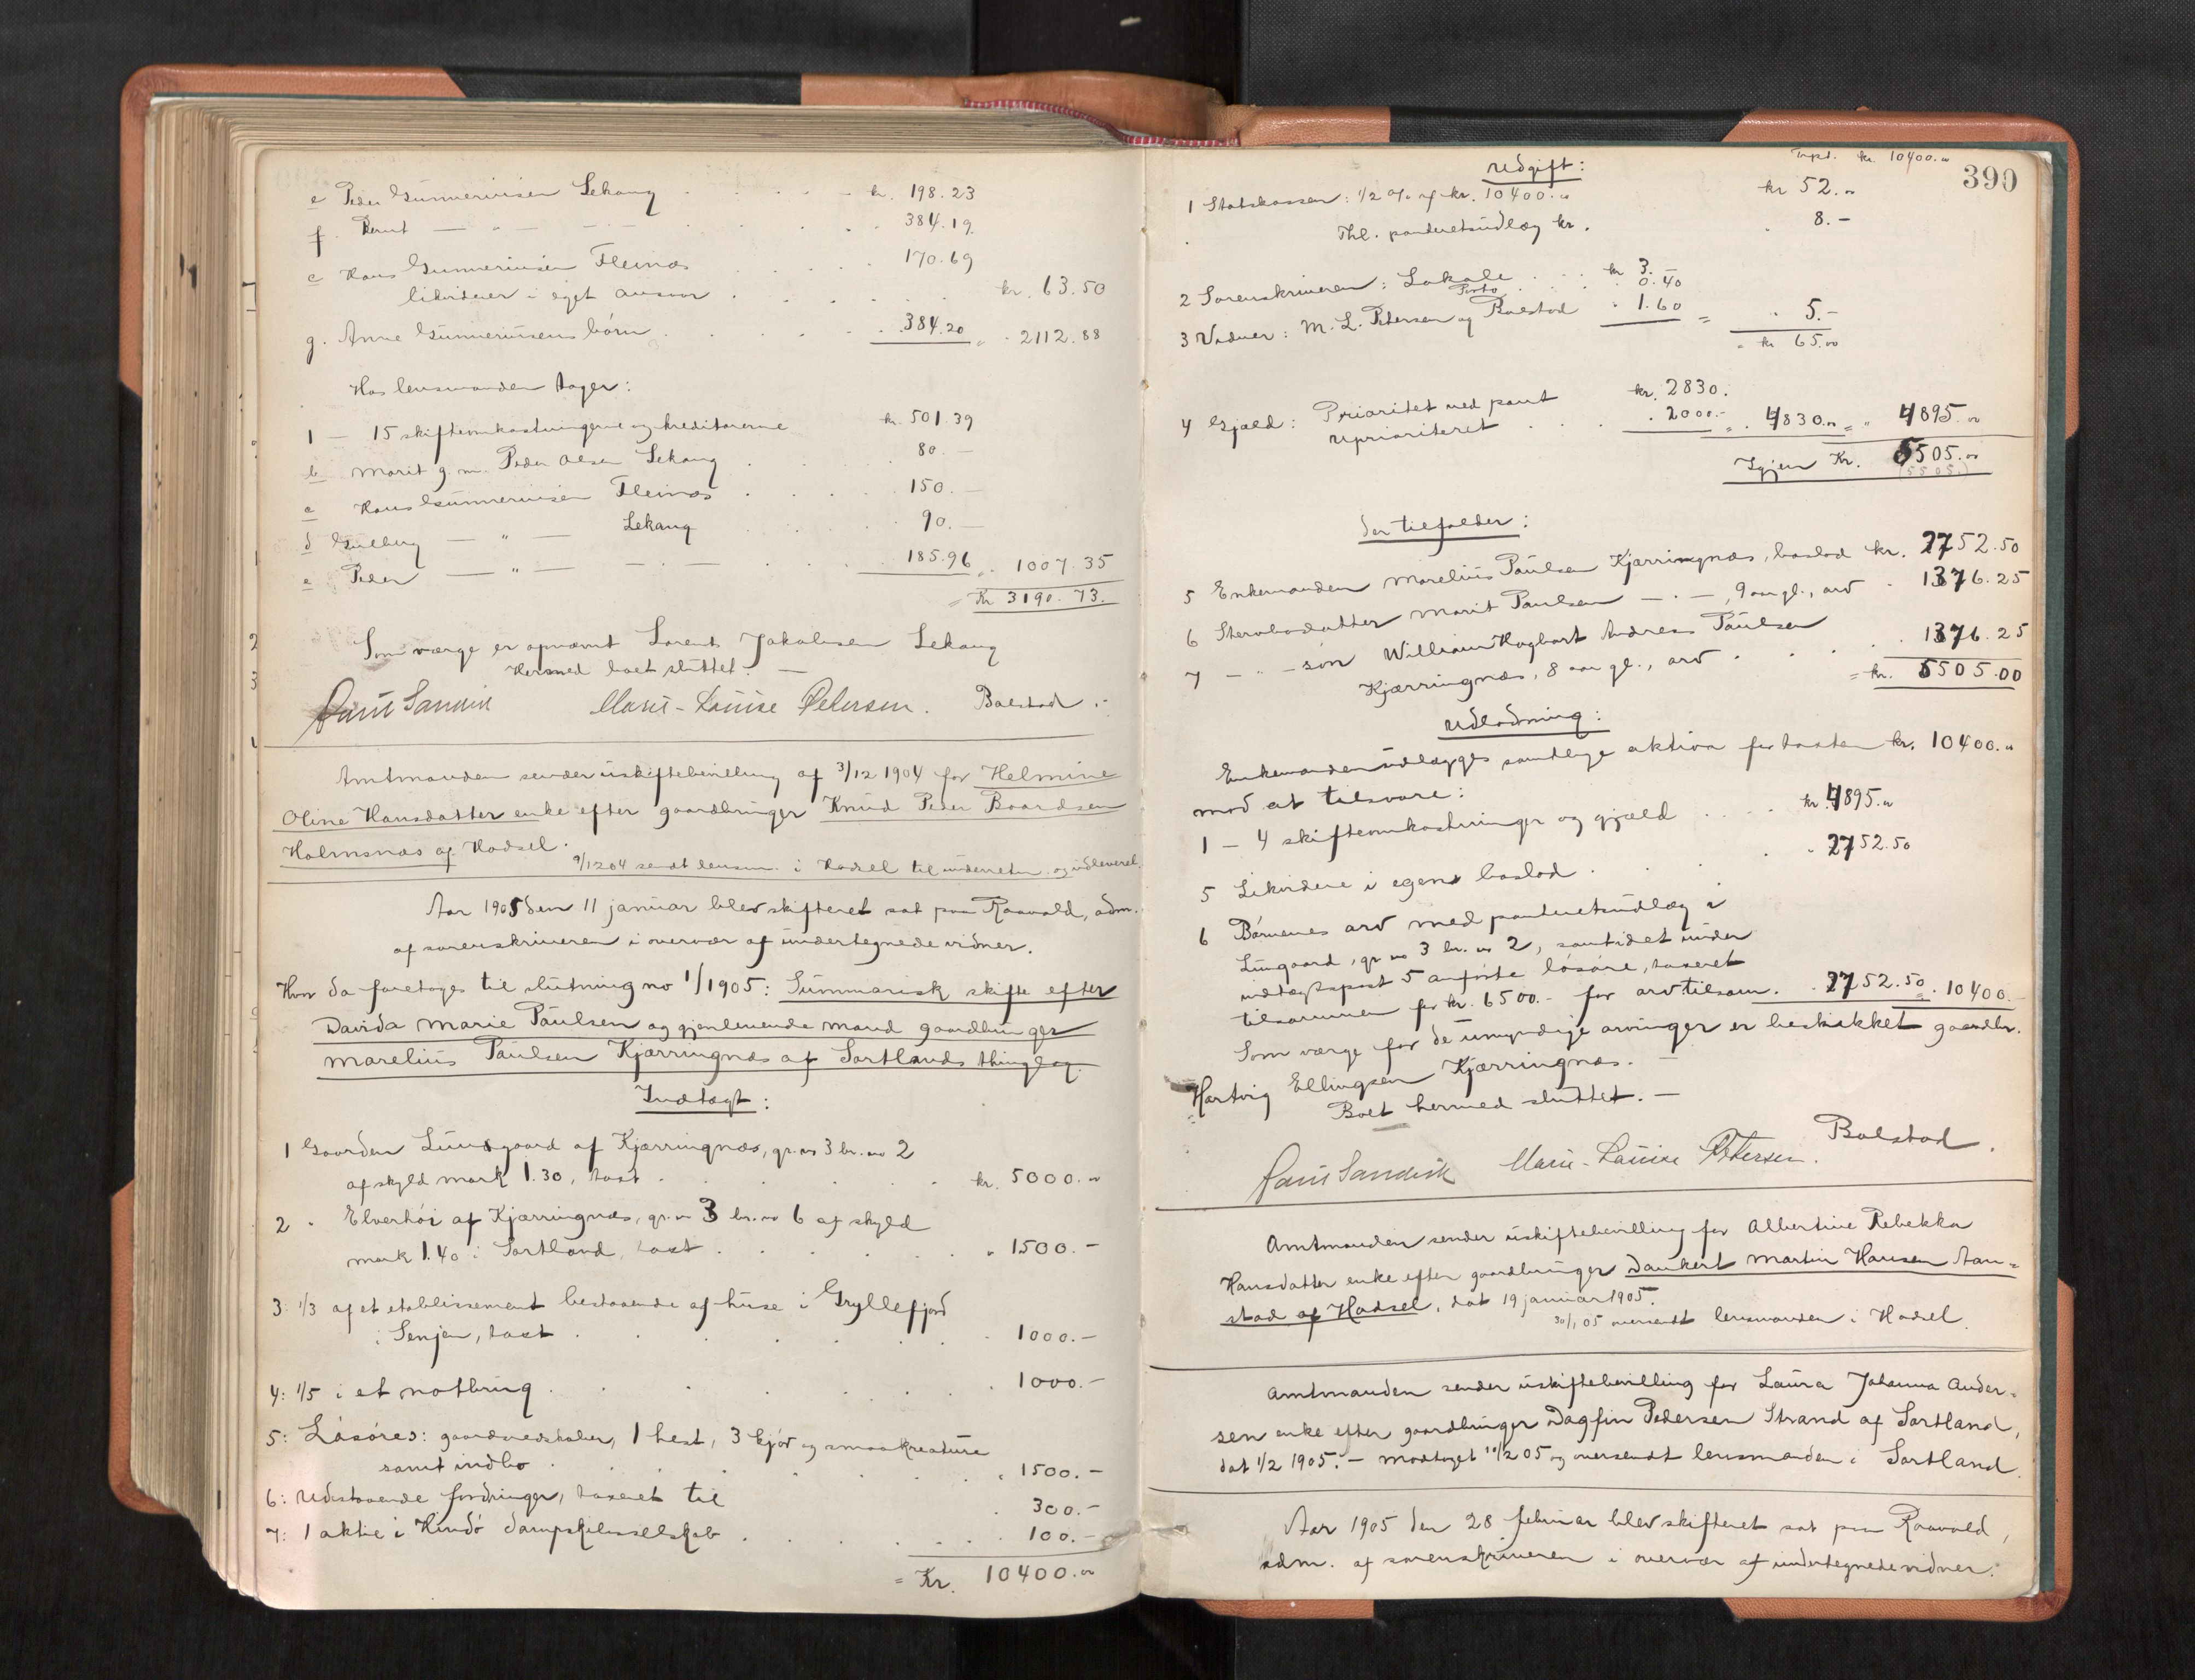 e Peder Gunneriusen Lekang kr. 198.23
f. Bernt — " — — · — 384.19
c Hans Gunneriusen Fleinæs 170.69
likviderer i eget ansvar kr. 63.50
g. Anne Gunneriusens børn 384.20 " 2112.88
Hos lensmanden tager:
1 — 15 skifteomkostningerne og kreditorerne kr. 501.39
b Marit g. m. Peder Olsen Lekang 80.—
c Hans Gunneriusen Fleinæs 150.—
d Gulberg — " — Lekang 90.—
e Peder — " — — · — 185.96 " 1007.35
= Kr 3190.73.
Som værge er opnævnt Lorents Jakobsen Lekang
Hermed boet sluttet. —
Marie-Louise Petersen. Bolstad.
Amtmanden sender uskiftebevilling af 3/12 1904 for Helmine
Oline Hansdatter enke efter gaardbruger Knud Peder Baardsen
Holmsnæs af Hadsel.
9/12 04 sendt lensm. i Hadsel til underretn. og udleverel.
Aar 1905 den 11 januar blev skifteret sat paa Raavald, adm.
af sorenskriveren i overvær af undertegnede vidner.
Hvor da foretoges til slutning no 1/1905: Summarisk skifte efter
Davida Marie Paulsen og gjenlevende mand gaardbruger
Marelius Paulsen Kjærringnæs af Sortlands thinglag.
Indtægt:
1 Gaarden Lunsgaard af Kjærringnæs, gr. no 3 br. no 2
af skyld mark 1.30, taxt kr. 5000.00
2 " Elverhøi af Kjærringnæs, gr. no 3 br. no 6 af skyld
mark 1.40 i Sortland, taxt " 1500.—
3: 1/3 af et etablissement bestaaende af huse i Gryllefjord
i Senjen, taxt 1000.—
4: 1/5 i et notbrug 1000.—
5: Løsøres: gaardsredskaber, 1 hest, 3 kjør og smaakreature
samt indbo 1500.—
6: Udestaaende fordringer, taxeret til 300.—
7: 1 aktie i Hindø dampskibsselskab 100.—
= Kr. 10400.00
390
Trspt. kr. 10400.00
Udgift:
1 Statskassen: 1/2 % af kr. 10400.00 kr 52.00
Thl. panteretsudlæg kr. 8.—
2 Sorenskriveren: Lokale kr 3.—
Porto 0.40
3 Vidner: M. L. Petersen og Bolstad 1.60 = " 5.—
= kr 65.00
4 Gjæld: Prioritet med pant kr. 2830.
Uprioriteret 2000.— = 4830.00 = " 4895.00
Igjen Kr. 5505.00
(5505.)
Der tilfalder:
5 Enkemanden Marelius Paulsen Kjærringnæs, boslod kr. 2752.50
6 Stervbodatter Marit Paulsen — · —, 9 aar gl., arv 1376.25
7 — " — søn William Hagbart Andreas Paulsen
Kjærringnæs, 8 aar gl., arv 1376.25
= kr. 5505.00
Udlodning:
Enkemanden udlægges samtlige aktiva for taxten kr. 10400.00
mod at tilsvare:
1 — 4 skifteomkostninger og gjæld kr 4895.00
5 Likvidere i egen boslod 2752.50
6 Børnenes arv med panteretsudlæg i
Lunsgaard, gr. no 3 br. no 2, samt i det under
indtægtspost 5 anførte løsøre, taxeret
tilsammen for kr. 6500.— for arv tilsam. 2752.50 = 10400.—
Som værge for de umyndige arvinger er beskikket gaardbr.
Hartvig Ellingsen Kjærringnæs. —
Boet hermed sluttet. —
Marie-Louise Petersen. Bolstad.
Amtmanden sender uskiftebevilling for Albertine Rebekka
Hansdatter enke efter gaardbruger Dankert Martin Hansen Aan=
stad af Hadsel, dat 19 januar 1905.
30/1 05 oversendt lensmanden i Hadsel.
Amtmanden sender uskiftebevilling for Laura Johanna Ander=
sen enke efter gaardbruger Dagfin Pedersen Strand af Sortland,
dat 1/2 1905. — modtaget 10/2 05 og oversendt lensmanden i Sortland.
Aar 1905 den 28 februar blev skifteret sat paa Raavald,
adm. af sorenskriveren i overvær af undertegnede vidner.